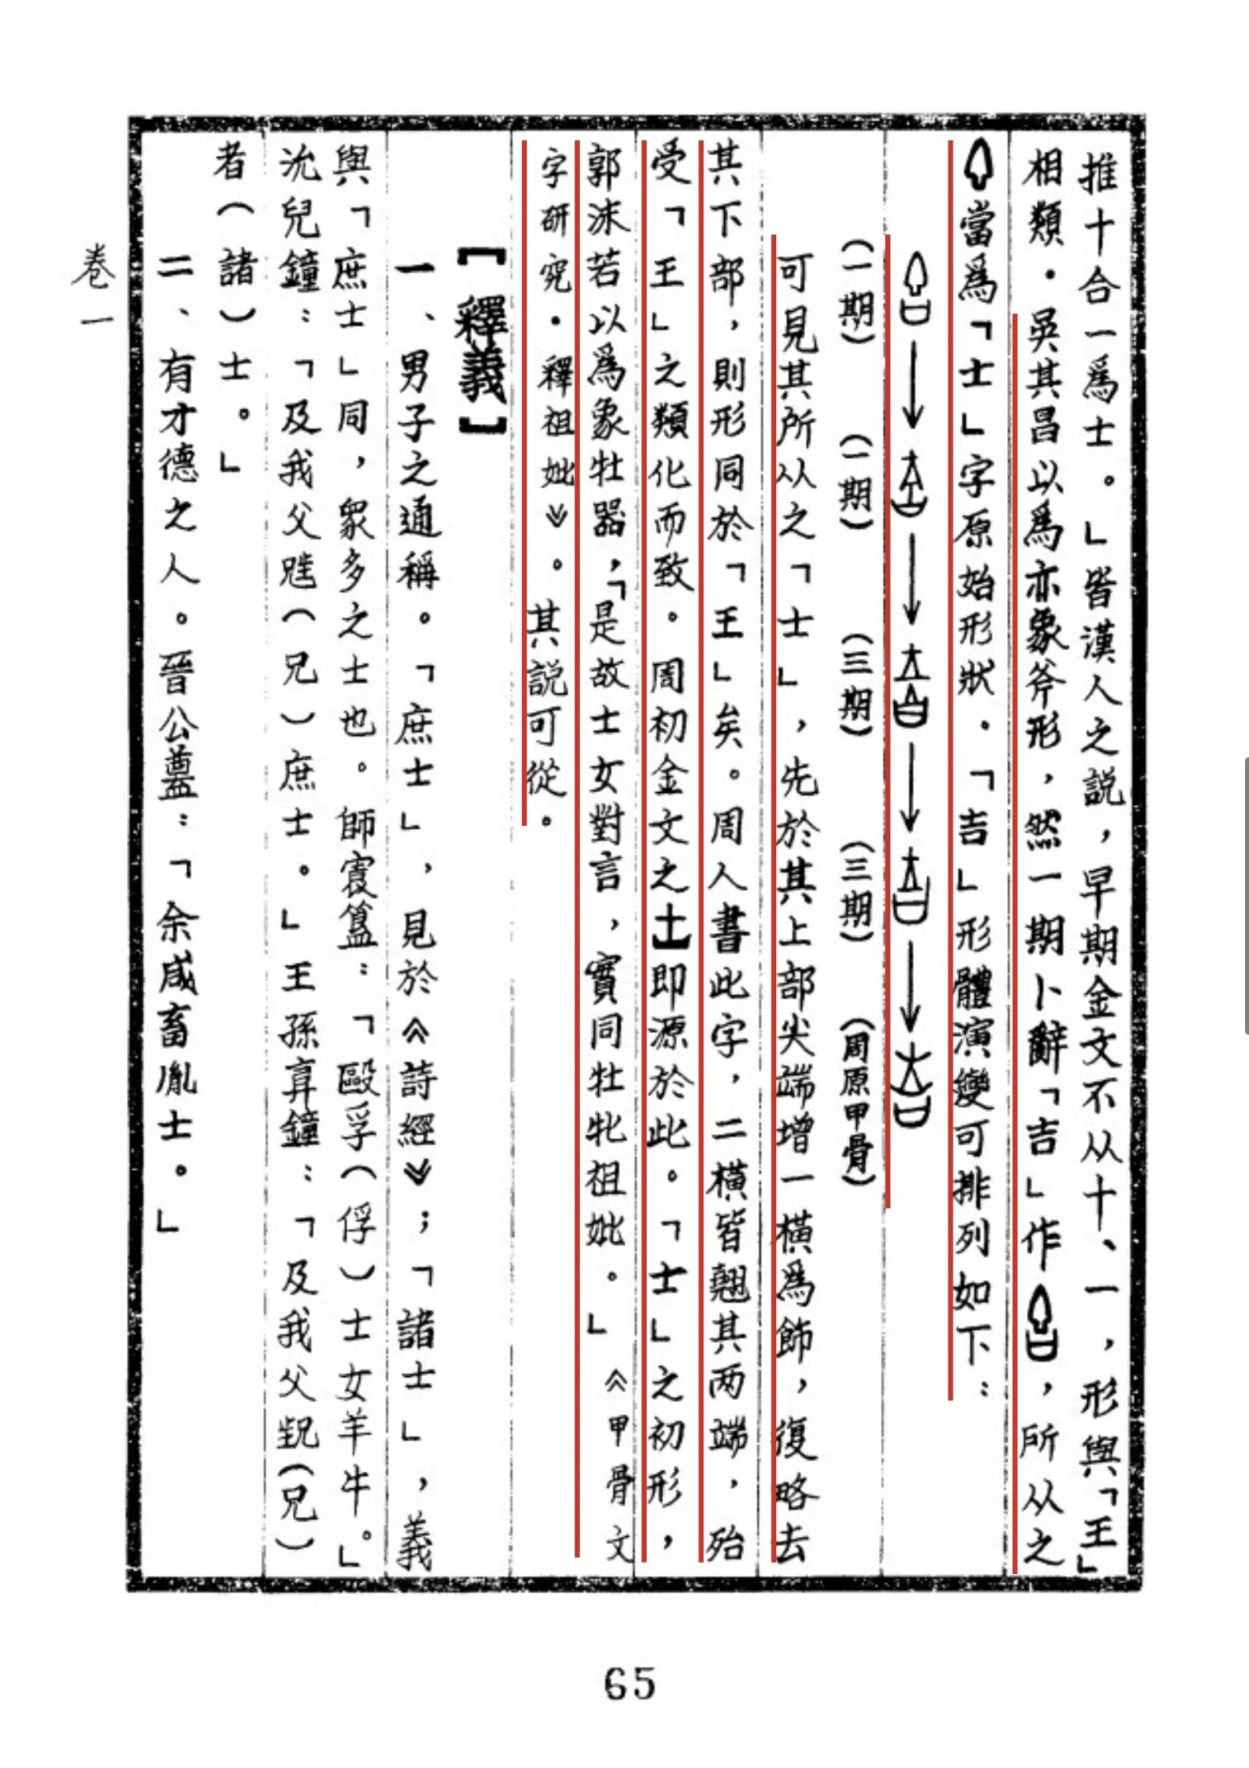 推十合一爲士。」皆漢人之説，早期金文不从十、一，形與「王」
相類．吳其昌以爲亦象斧形，然一期卜辭「吉」作，所从之
當爲「士」字原始形狀．「吉」形體演變可排列如下：
（一期）（一期）（三期）（三期）（周原甲骨）
可見其所从之「士」，先於其上部尖端增一橫爲飾，復略去
其下部，則形同於「王」矣。周人書此字，二橫皆翹其两端，殆
受「王」之類化而致。周初金文之即源於此。「士」之初形，
郭沫若以爲象牡器，「是故士女對言，實同牡牝祖妣。」《甲骨文
字研究．釋祖妣》。其説可從。
【釋義】
一、男子之通稱。「庶士」，見於《詩經》；「諸士」，義
與「庶士」同，衆多之士也。師寰簋：「毆孚（俘）士女羊牛。」
沇兒鐘：「及我父（兄）庶士。」王孫鐘：「及我父（兄）
者（諸）士。」
二、有才德之人。晉公：「余咸畜胤士。」
卷一
65